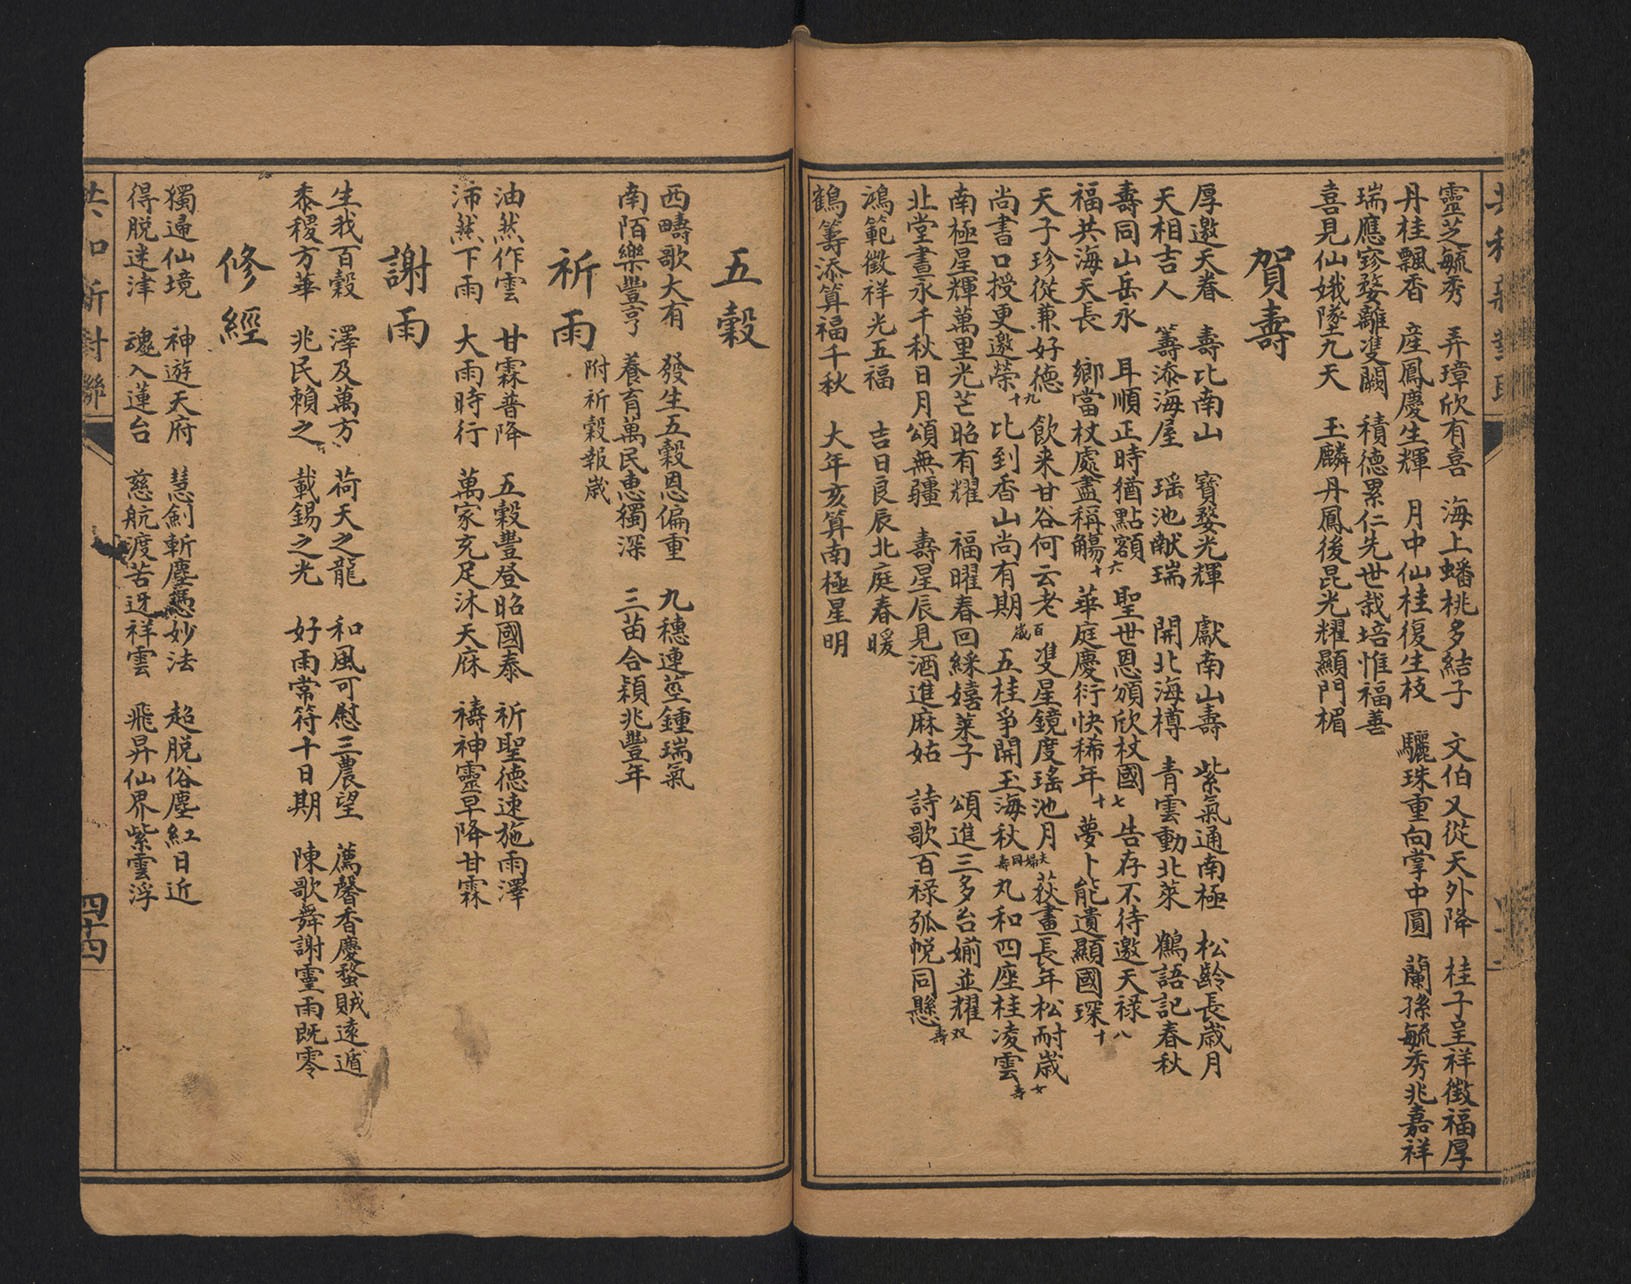 靈芝毓秀　弄璋欣有喜　海上蟠桃多結子　文伯又從天外降　桂子呈祥徵福厚
丹桂飄香　産鳳慶生輝　月中仙桂復生枝　驪珠重向掌中圓　蘭孫毓秀兆嘉祥
瑞應寶婺離雙闕　積德累仁先世栽培惟福善
喜見仙娥墜九天　玉麟丹鳳後昆光耀顯門楣
賀壽
厚邀天眷　壽比南山　寶婺光輝　獻南山壽　紫氣通南極　松齡長歲月
天相吉人　籌添海屋　瑶池献瑞　開北海樽　青雲動北萊　鶴語記春秋
壽同山岳永　耳順正時猶點額六　聖世恩頒欣杖國七　告存不待邀天禄八
福共海天長　鄉當杖處盡稱觴十　華庭慶衍快稀年十　夢卜能遺顯國琛十
天子珍從兼好德九　飲来甘谷何云老百　雙星鏡度瑤池月夫婦　荻畫長年松耐歲女
尚書口授更邀榮十　比到香山尚有期歲　五桂爭開玉海秋同壽　丸和四座桂凌雲壽
南極星輝萬里光芒昭有耀　福曜春回綵嬉萊子　頌進三多台媊並耀双
北堂晝永千秋日月頌無疆　壽星辰見酒進麻姑　詩歌百禄弧帨同懸壽
鴻範徵祥光五福　吉日良辰北庭春暖
鶴籌添算福千秋　大年亥算南極星明
五穀
西疇歌大有　發生五穀恩偏重　九穗連莖鍾瑞氣
南陌樂豐亨　養育萬民惠獨深　三苗合穎兆豐年
祈雨　附祈穀報歲
油然作雲　甘霖普降　五穀豐登昭國泰　祈聖德速施雨澤
沛然下雨　大雨時行　萬家充足沐天庥　禱神靈早降甘霖
謝雨
生我百穀　澤及萬方　荷天之龍　和風可慰三農望　薦馨香慶蝥賊遠遁
黍稷方華　兆民賴之　載錫之光　好雨常符十日期　陳歌舞謝靈雨既零
修經
獨遥仙境　神遊天府　慧劍斬塵憑妙法　超脱俗塵紅日近
得脱迷津　魂入蓮台　慈航渡苦迓祥雲　飛昇仙界紫雲浮
共和新對聯
四十四